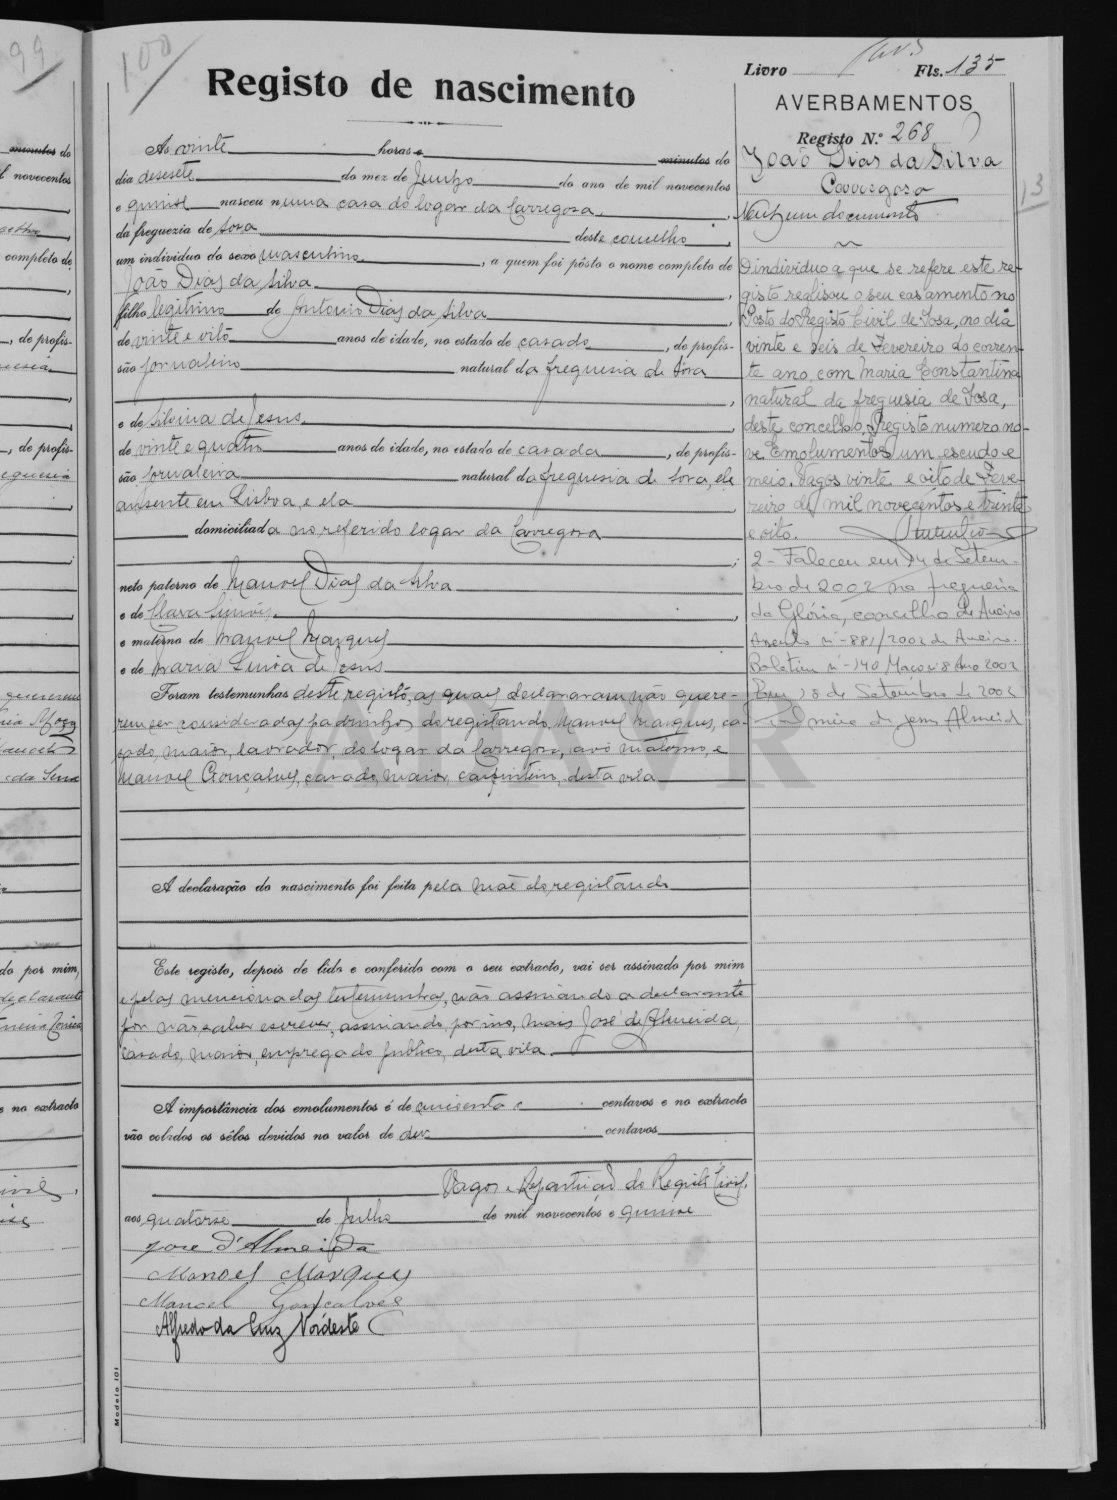 99
100
Livro
Fls. 135
Registo de nascimento
AVERBAMENTOS
Registo N.º 268
João Dias da Silva
Carregosa
Nenhum documento
13
Ás vinte horas e minutos do
dia desesete do mez de Junho do ano de mil novecentos
e quinse nasceu numa casa do logar da Carregosa,
da freguezia de Sosa deste concelho,
um individuo do sexo masculino, a quem foi pôsto o nome completo de
João Dias da Silva,
filho legitimo de Antonio Dias da Silva,
de vinte e oito anos de idade, no estado de casado, de profis-
são jornaleiro natural da freguesia de Sosa
e de Silvina de Jesus,
de vinte e quatro anos de idade, no estado de casada, de profis-
são jornaleira natural da freguesia de Sosa, ele
ausente em Lisboa, e ela
domiciliada no referido logar da Carregosa
neto paterno de Manuel Dias da Silva
e de Clara Simões,
e materno de Manoel Marques
e de Maria Luisa de Jesus
Foram testemunhas deste registo, as quaes declararam não quere-
rem ser consideradas padrinhos do registando, Manuel Marques, ca-
sado, maior, lavrador, do logar da Carregosa, avô materno, e
Manoel Gonçalves, casado, maior, carpinteiro, desta vila
A declaração do nascimento foi feita pela mãe do registando
Este registo, depois de lido e conferido com o seu extracto, vai ser assinado por mim
e pelas mencionadas testemunhas, não assinando a declarante
por não saber escrever, assinando por isso, mais José de Almeida,
casado, maior, empregado publico, desta vila.
A importância dos emolumentos é de centavos e no extracto
vão colados os sêlos devidos no valor de dez centavos
Vagos e Repartição do Registo Civil,
aos quatorse de Julho de mil novecentos e quinse
José d'Almeida
Manoel Marques
Manoel Gonçalves
Alfredo da Cruz Nordeste
Modelo 101
O individuo a que se refere este re-
gisto realisou o seu casamento no
Posto do Registo Civil de Sosa, no dia
vinte e seis de Fevereiro do corren-
te ano, com Maria Constantina
natural da freguesia de Sosa,
deste concelho, Registo numero no-
ve. Emolumentos um escudo e
meio. Vagos vinte e oito de Feve-
reiro de mil novecentos e trinta
e oito.
2 - Faleceu em 14 de Setem-
bro de 2002 na freguesia
da Glória, concelho de Aveiro
Assento nº - 881/2002 de Aveiro.
Boletim nº - 140 Maço nº 8 Ano 2002
Em 18 de Setembro de 2002
ADAVR